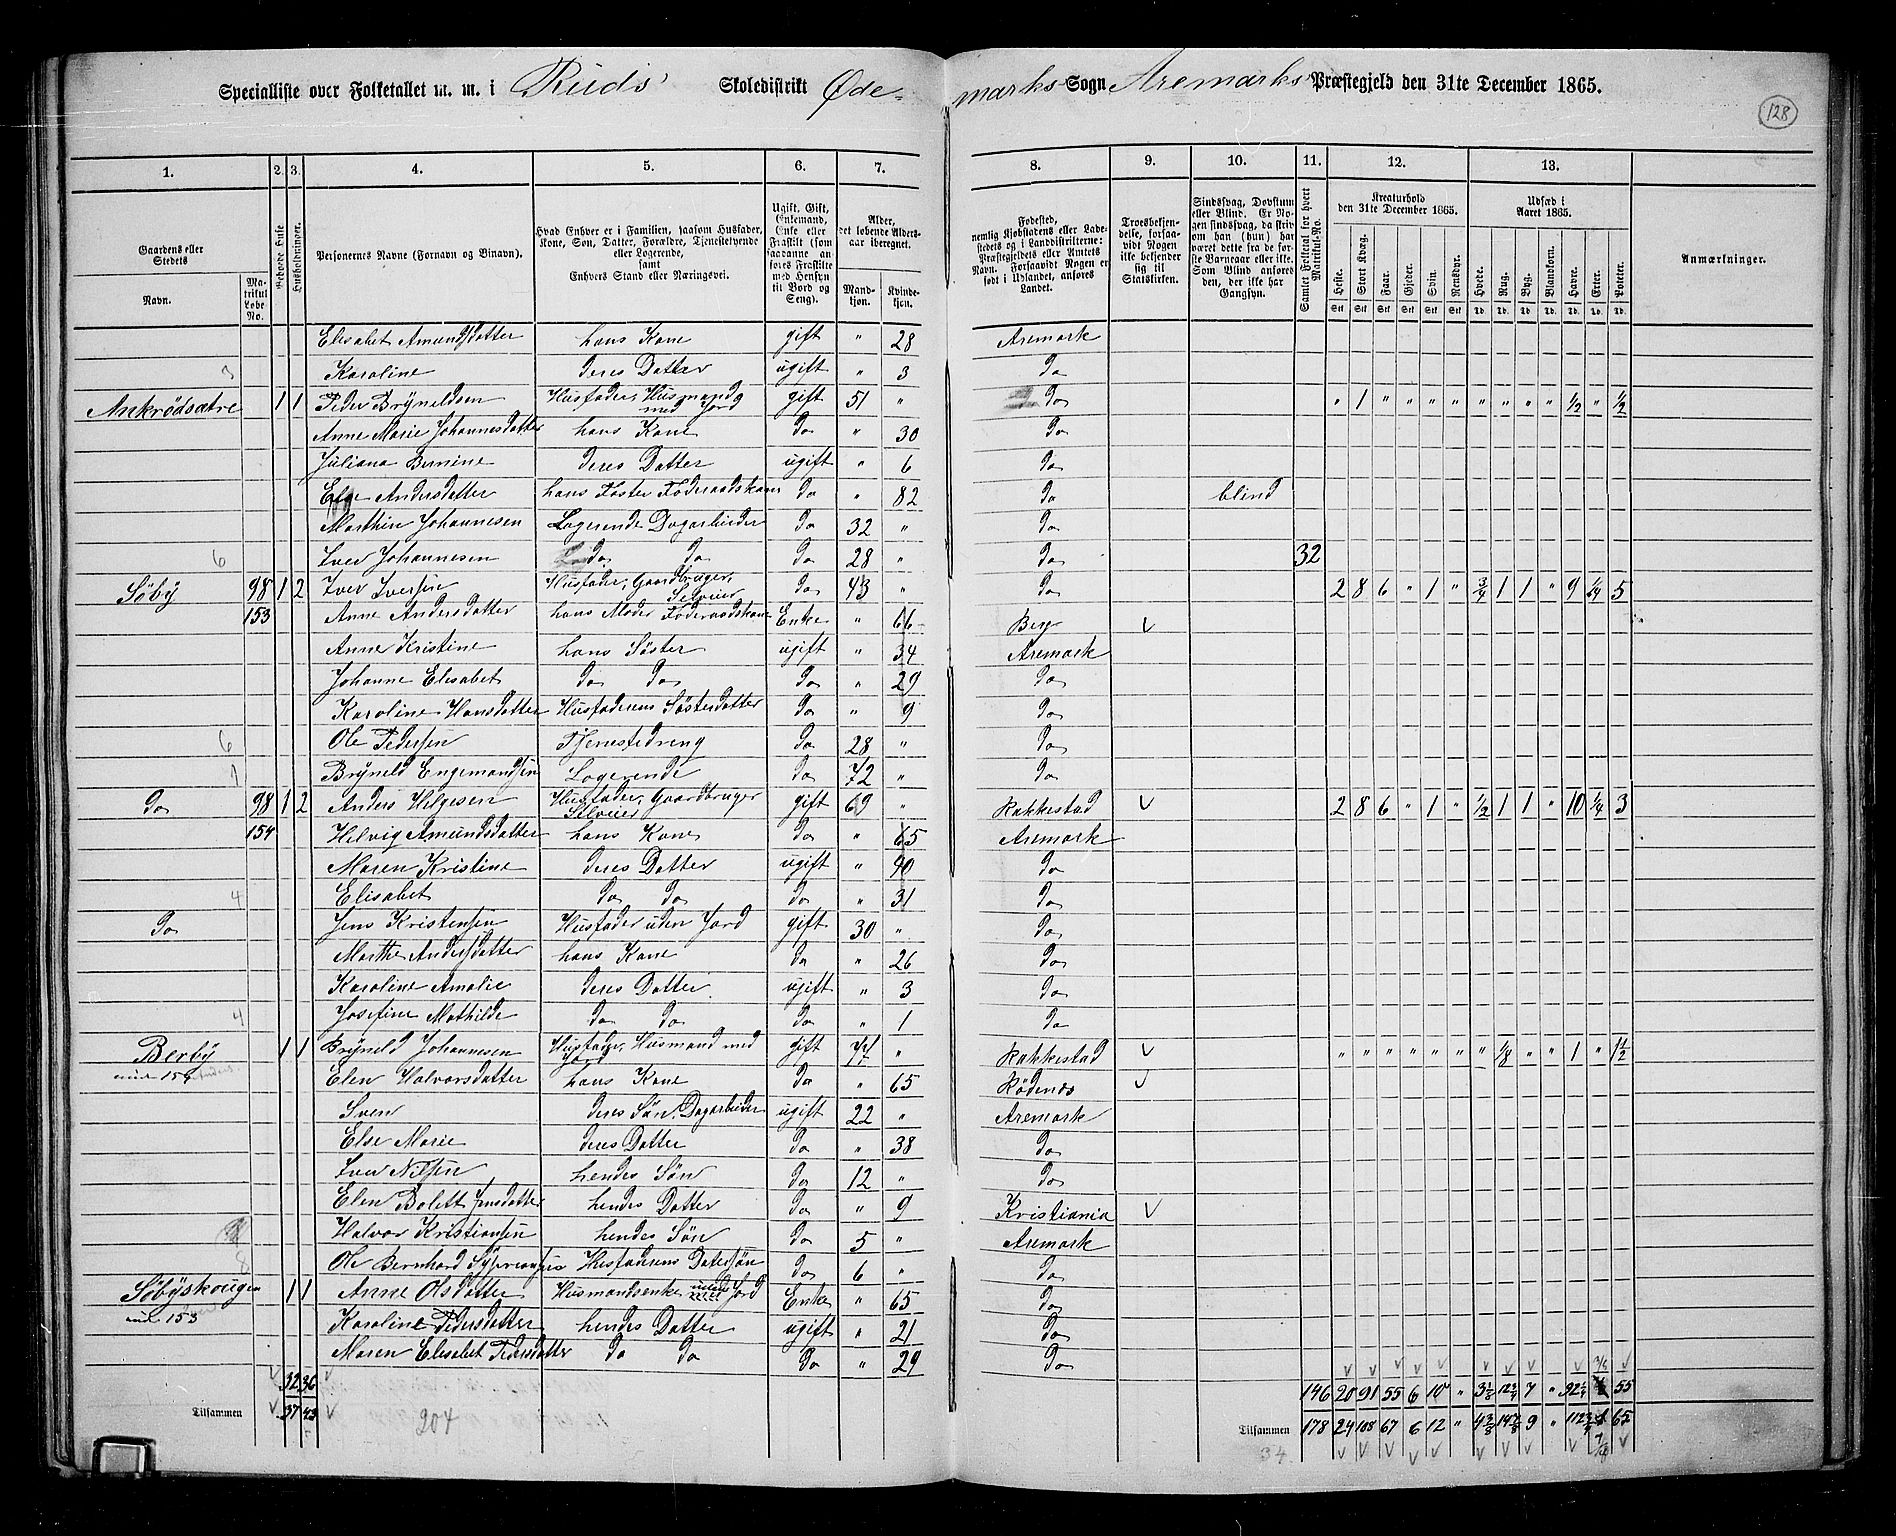 Specialliste over Folketallet m. m. i Ruds Skoledistrikt Øde- marks Sogn Aremarks Præstegjeld den 31te December 1865.
128
1. 2. 3. 4. 5. 6. 7. 8. 9. 10. 11. 12. 13.
Gaardens eller Stedets Navn. Matrikul Løbe No. Beboede Huse Husholdninger. Personernes Navne (Fornavn og Binavn). Hvad Enhver er i Familien, saasom Husfader, Kone, Søn, Datter, Forældre, Tjenestetyende eller Logerende, samt Enhvers Stand eller Næringsvei. Ugift, Gift, Enkemand, Enke eller Fraskilt (som saadanne anføres Fraskilte med Hensyn til Bord og Seng). Alder, det løbende Aldersaar iberegnet. Mandkjøn. Kvindekjøn. Fødested, nemlig Kjøbstadens eller Ladestedets og i Landdistrikterne: Præstegjeldets eller Amtets Navn. Forsaavidt Nogen er født i Udlandet, anføres Landet. Troesbekjendelse, forsaavidt Nogen ikke bekjender sig til Statskirken. Sindssvag, Døvstum eller Blind. Er Nogen sindssvag, da skrives om han (hun) har været dette fra de første Barneaar eller ikke. Som Blind anføres den, der ikke har Gangsyn. Samlet Folketal for hvert Matrikul-No. Kreaturhold den 31te December 1865. Heste. Stort Kvæg. Faar. Gjeder. Svin. Rensdyr. Udsæd i Aaret 1865. Hvede. Rug. Byg. Blandkorn. Havre. Erter. Poteter. Anmærkninger.
Elisabet Amundsdatter hans Kone gift " 28 Aremark
3 Karoline deres Datter ugift " 3 do
Ankrødsætre 1 1 Peder Brynildsen Husfader, Husmand med Jord gift 51 " do " 1 " " " " " " " " 1/2 " 1/2
Anne Marie Johannesdatter hans Kone do " 30 do
Juliana Bernine deres Datter ugift " 6 do
Else Andersdatter hans Foster Føderaadskone do " 82 do blind
Marthin Johannesen Logerende Dagarbeider do 32 " do
6 Iver Johannesen do do do 28 " do 32
Søby 98 1 2 Iver Iversen Husfader, Gaardbruger, Selveier do 43 " do 2 8 6 " 1 " 3/4 1 1 " 9 1/4 5
153 Anne Andersdatter hans Moder Føderaadskone Enke " 66 Berg
Anne Kristine hans Søster ugift " 34 Aremark
Johanne Elisabet do do do " 29 do
Karoline Hansdatter Husfaderens Søsterdatter do " 9 do
6 Ole Pedersen Tjenestedreng do 28 " do
1 Brynild Engemandsen Logerende do 72 " do
do 98 1 2 Anders Helgesen Husfader, Gaardbruger Selveier gift 69 " Rakkestad 2 8 6 " 1 " 1/2 1 1 " 10 1/4 3
154 Helvig Amundsdatter hans Kone do " 65 Aremark
Maren Kristine deres Datter ugift " 40 do
4 Elisabet do do do " 31 do
do Jens Kristensen Husfader uden Jord gift 30 " do
Marthe Andersdatter hans Kone do " 26 do
Karoline Amalie deres Datter ugift " 3 do
4 Josefine Mathilde do do do " 1 do
Berby 1 1 Brynild Johannesen Husfader, Husmand med Jord gift 71 " Rakkestad " " " " " " " 1/8 " " 1 " 1 1/2
und 154 Elen Halvorsdatter hans Kone do " 65 Rødenes
Sven deres Søn, Dagarbeider ugift 22 " Aremark
Else Marie deres Datter do " 38 do
Iver Nilsen hendes Søn do 12 " do
Elen Bolett Jensdatter hendes Datter do " 9 Kristiania
Halvor Kristiansen hendes Søn do 5 " Aremark
8 Ole Bernhard Husfaderens Dattersøn do 6 " do
Søbyskougen 1 1 Anne Olsdatter Husmandsenke med Jord Enke " 65 do
und 153 Karoline Pedersdatter hendes Datter ugift " 21 do
Maren Elisabet Pedersdatter do do do " 29 do
32 36 146 20 91 55 6 10 " 3 1/8 12 3/4 7 " 92 1/4 55
Tilsammen 37 43 204 Tilsammen 178 24 108 67 6 12 " 4 3/8 14 7/8 9 " 112 3/4 65
34